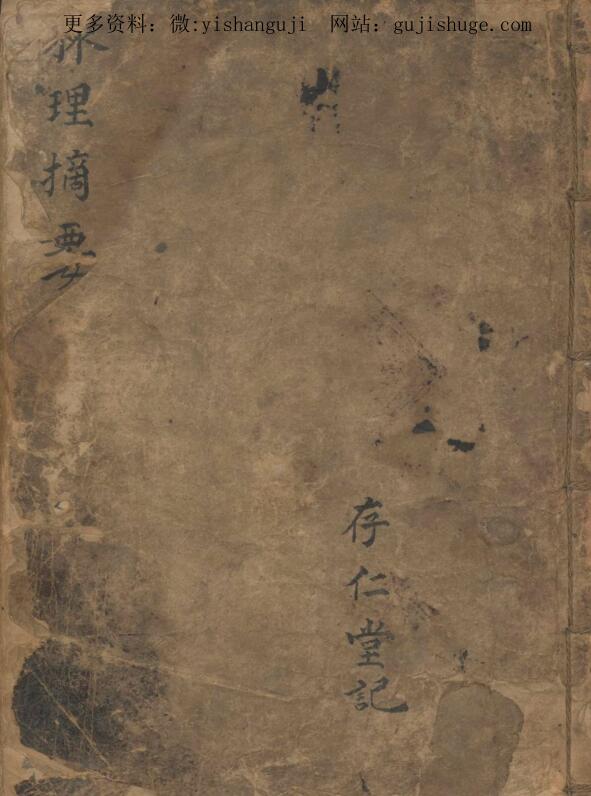 更多资料：微:yishanguji 网站：gujishuge.com
理摘要
存仁堂記